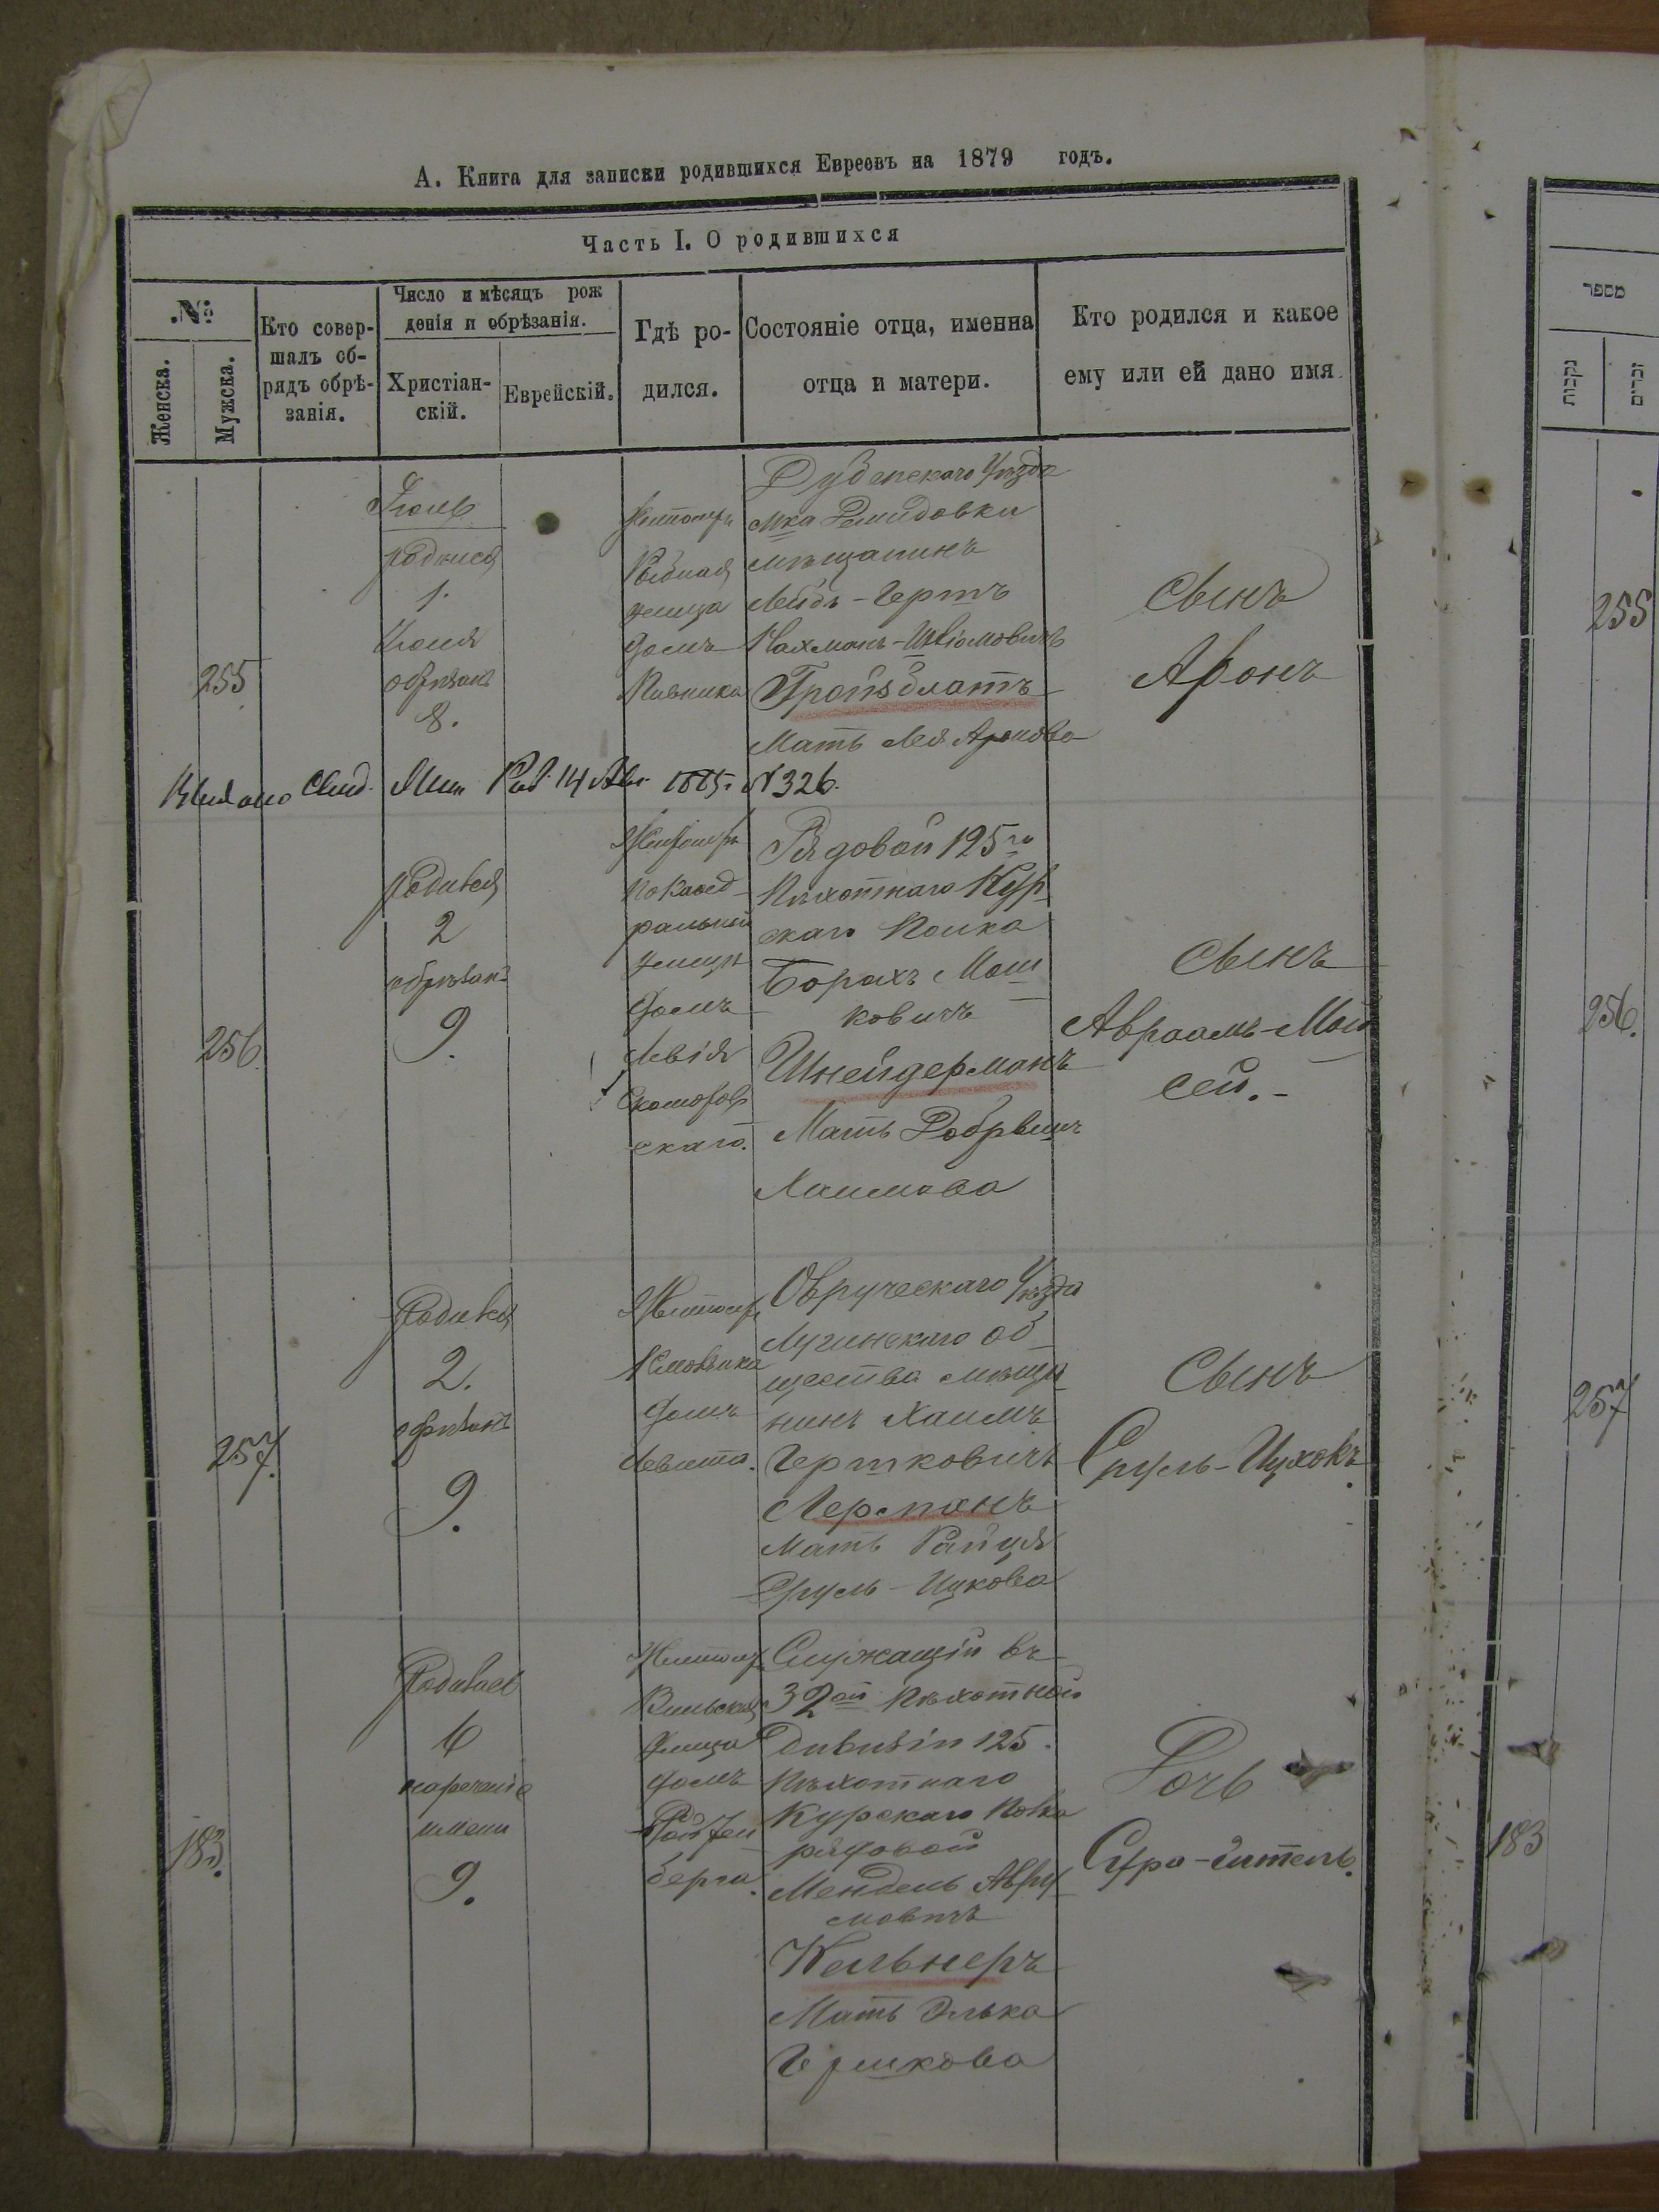 А. Книга для записки родившихся Евреевъ на 1879 годъ.
Часть I. О родившихся
.№
Женска.
Мужска.
Кто совер-
шалъ об-
рядъ обрѣ-
занія.
Число и мѣсяцъ рож
денія и обрѣзанія.
Христіан-
скій.
Еврейскій.
Гдѣ ро-
дился.
Состояніе отца, именна
отца и матери.
Кто родился и какое
ему или ей дано имя
255
Іюль
родился
1.
Іюля
обрѣзанъ
8.
Житомръ
Рыбная
улица
домъ
Пивника
Дубенскаго Уѣзда
мка Демидовки
мѣщанинъ
Лейбъ-Гершъ
Нахманъ-Шліомовичъ
Гройзблатъ
Мать Лея Аронова
Сынъ
Аронъ
Выдано Свид. 14 Авг 1885 № 326.
256
родился
2
обрѣзанъ
9.
Житомръ
по Каѳед
ральной
улицы
домъ
Левія
Скоморов
скаго.
Рядовой 125го
Пѣхотнаго Кур
скаго Полка
Борахъ Мош
ковичъ
Шнейдерманъ
Мать Добрышъ
Хаимова
Сынъ
Авраамъ-Мой
сей.-
257.
Родился
2.
обрѣзанъ
9.
Житомр
домъ
Левита.
Овручскаго Уѣзда
Лугинскаго об
щества мѣща
нинъ Хаимъ
Гершковичъ
Лерманъ
Мать Райця
Сруль-Ицкова
Сынъ
Сруль-Ицхокъ.
183.
Родилась
6
нареченіе
имени
9.
Житомр
Вильская
улица
домъ
Ройзен
берга.
Служащій въ
32ой Пѣхотной
Дивизіи 125.
Пѣхотнаго
Курскаго Полка
рядовой
Мендель Авру
мовичъ
Кельнеръ
Мать Элька
Гершкова
Дочь
Сура-Гитель.
מספר
נקבות
זכרים
255
256.
257
183